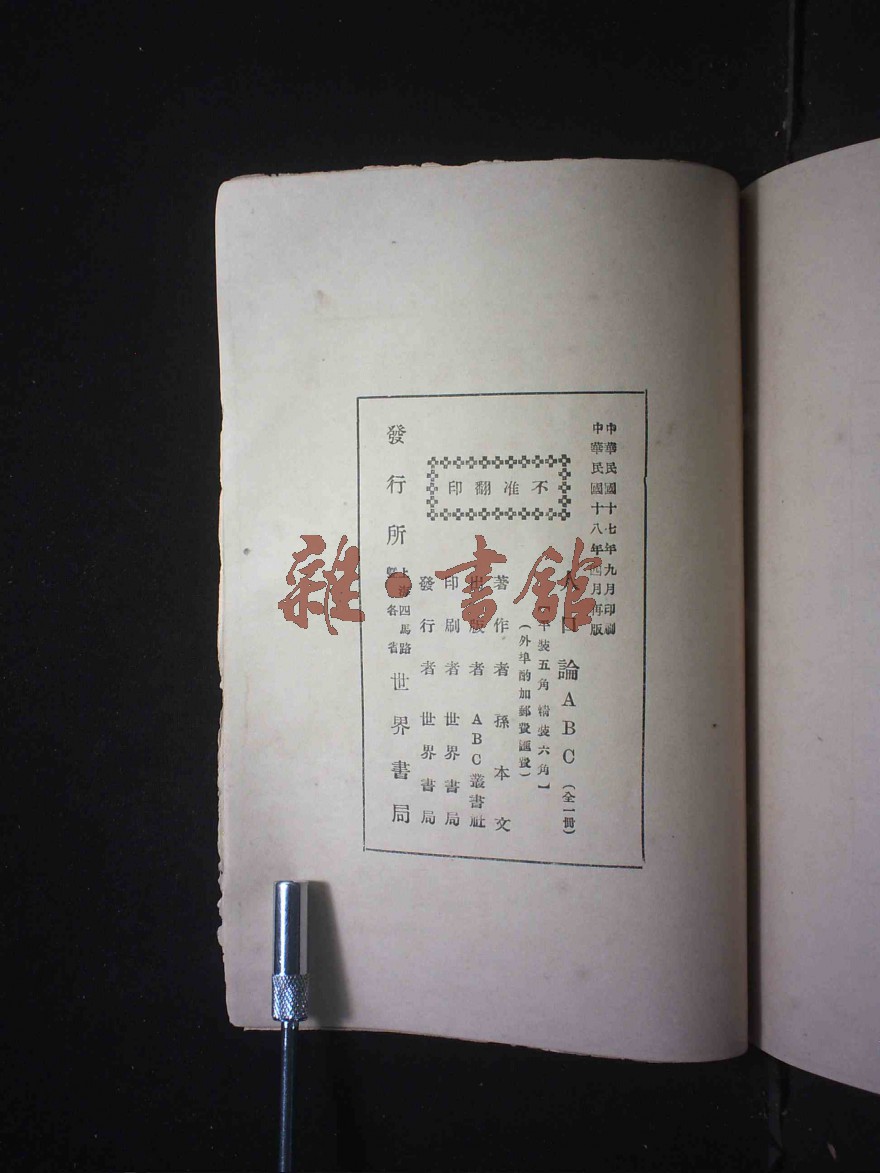 中華民國十七年九月印刷
中華民國十八年四月再版
人口論ABC（全一冊）
【平裝五角 精裝六角】
（外埠酌加郵費匯費）
著作者 孫本文
出版者 ABC叢書社
印刷者 世界書局
發行者 世界書局
不准翻印
發行所 上海四馬路暨各省 世界書局
雜·書館